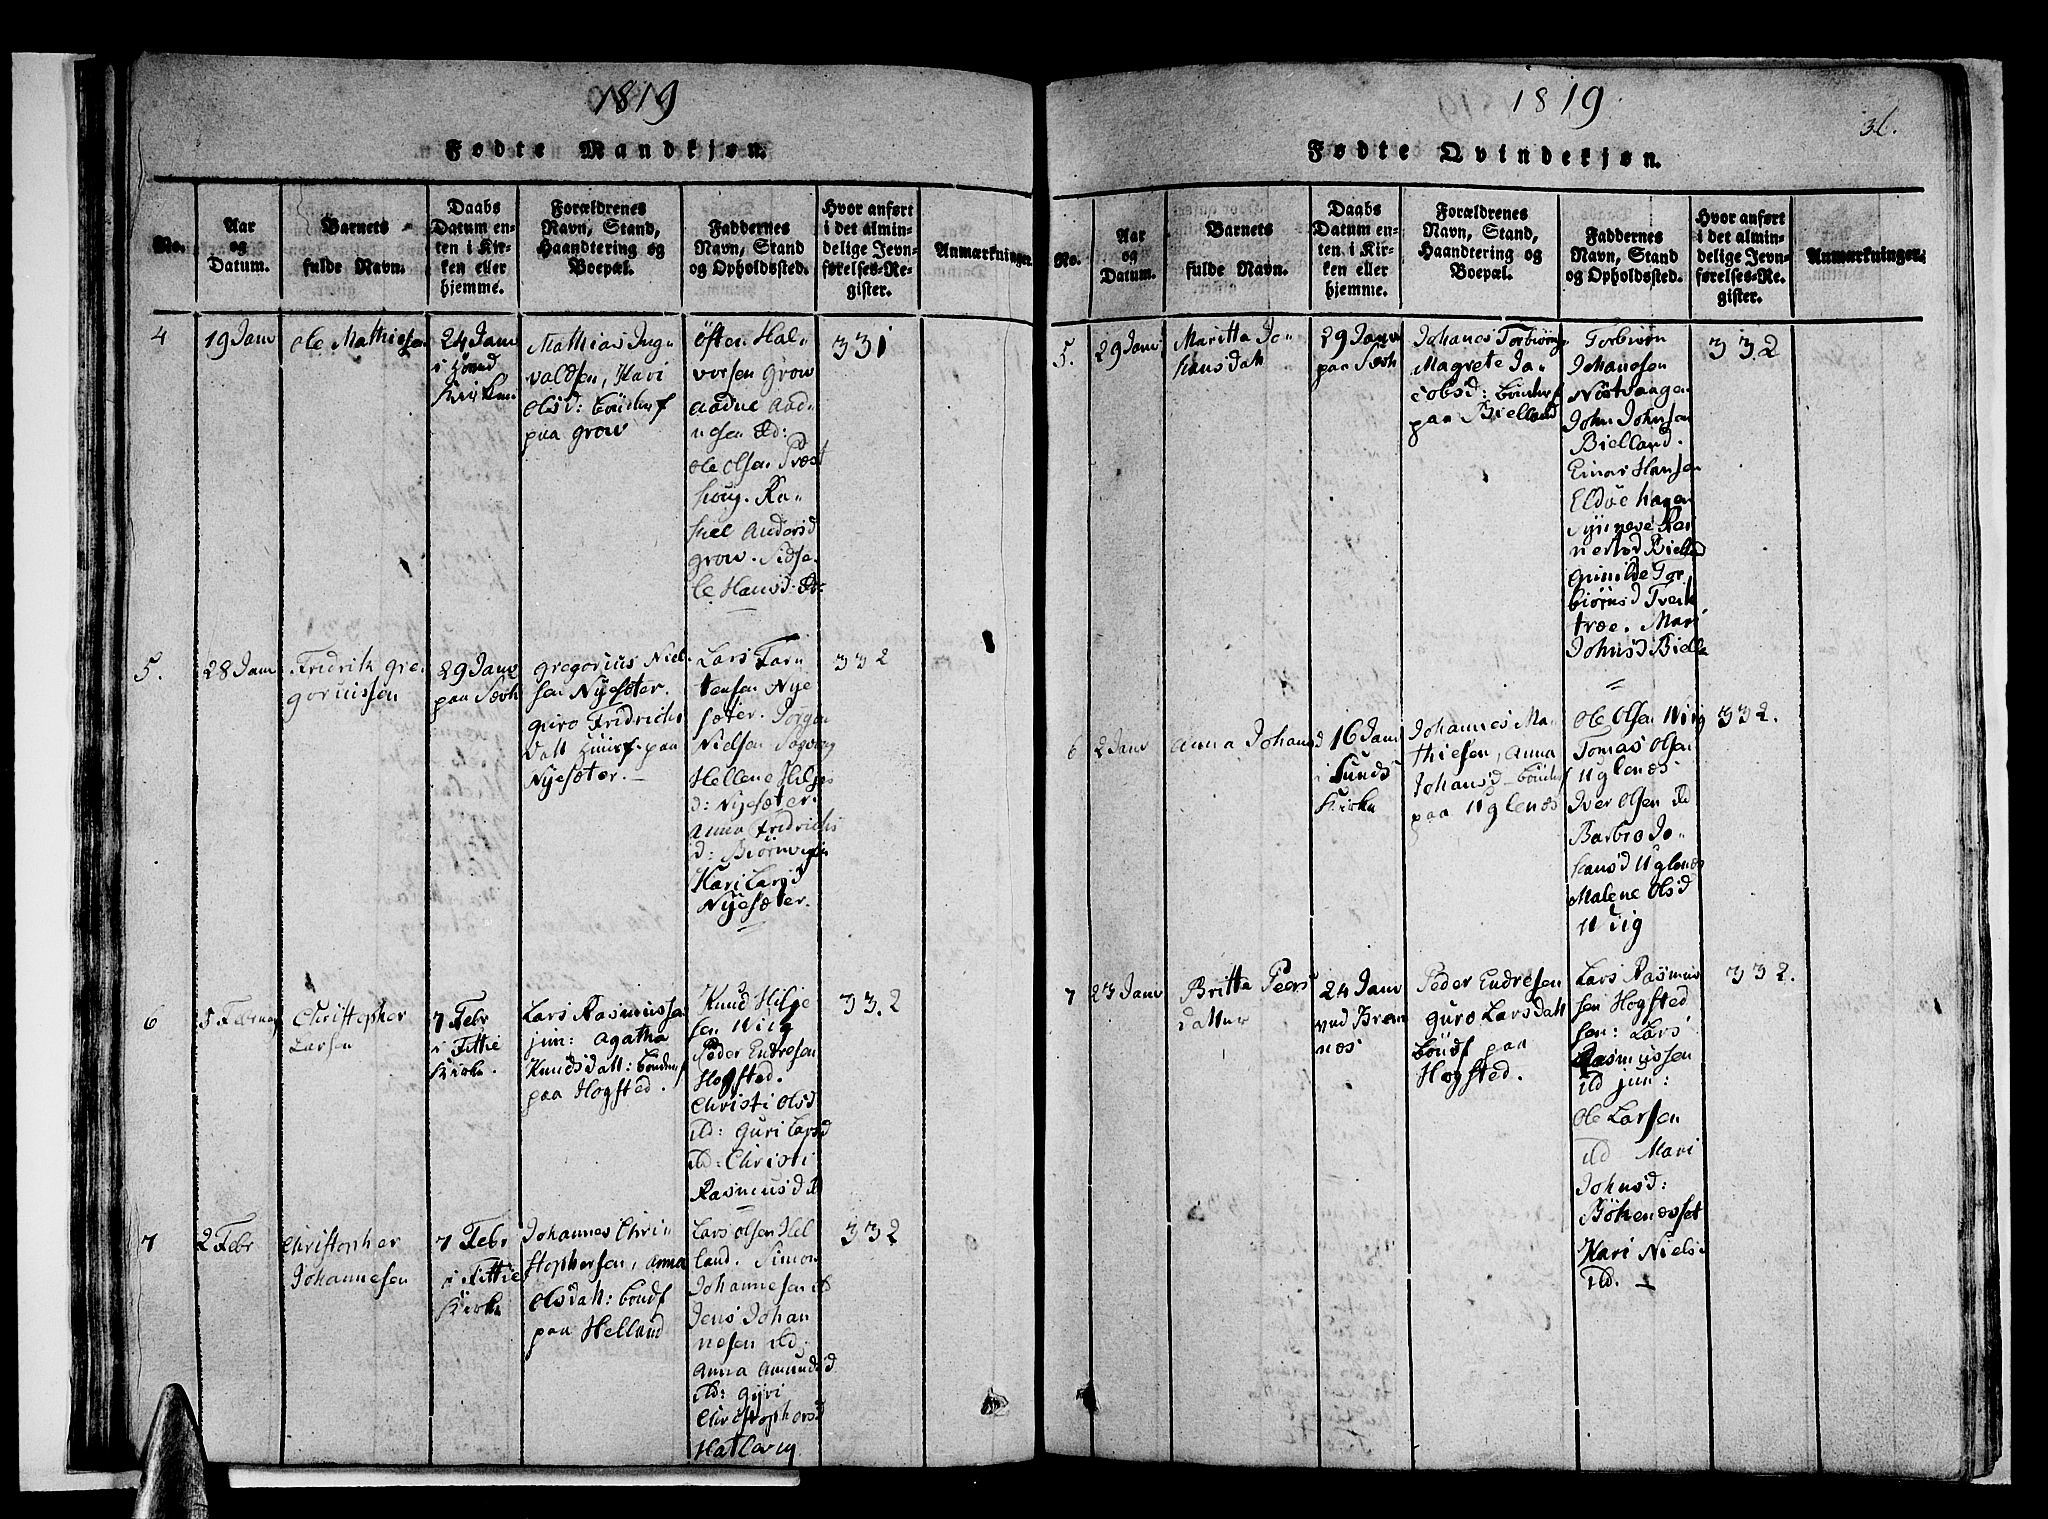 1819
Fødte Mandkjøn.
No.
Aar
og
Datum.
Barnets
fulde Navn.
Daabs
Datum en-
ten i Kir-
ken eller
hjemme.
Forældrenes
Navn, Stand,
Haandtering og
Boepæl.
Faddernes
Navn, Stand
og Opholdssted.
Hvor anført
i det almin-
delige Jevn-
førelses-Re-
gister.
Anmærkninger.
4
19 Janv
Ole Mathiesen
24 Janv
i
Kirken
Mathias Ing-
valdsen, Kari
Olsd: böndrf
paa Grow
Östen Hal-
vorsen Grow
Aadne Aad-
nesen ibd:
Ole Olsen Præst
houg. Ra-
hel Andersd
Grow. Sidse-
le Hansd: ib-
331
5.
28 Janv
Fridrik Gre-
goriussen
29 Janv
paa Sævh
Gregorius Niel-
sen Nyesæter.
Guro Fridrichs
datt huusf. paa
Nyesæter. —
Lars Tar-
tensen Nye
sæter. Jörgen
Nielsen Sagvog
Hellene Hilges
d: Nyesæter.
Anna Fridrichs
d: Biörnvegen
Kari Larsd
Nyesæter.
332
6
5 Februar
Christopher
Larsen
7 Febr
i Fittie
Kirke.
Lars Rasmussen
jun: Agatha
Knudsdatt: böndrf
paa Hogsted.
Knud Hilge
sen Wiig
Peder Endresen
Hogsted.
Christi Olsd
ibd: Guri Larsd
ibd: Christi
Rasmusd ib
332
7
2 Febr
Christopher
Johannesen
7 Febr
i Fittie
Kirke
Johannes Chri-
stophersen, Anna
Olsdatt: böndf
paa Helland
Lars Olsen Hel
land. Simon
Johannesen ib
Jens Johan
nesen ibd;
Anna Amundsd
ibd: Gyri
Christophersd
Hatlevig
332
1819
36.
Fødte Qvindekjøn.
No.
Aar
og
Datum.
Barnets
fulde Navn.
Daabs
Datum en-
ten i Kir-
ken eller
hjemme.
Forældrenes
Navn, Stand,
Haandtering og
Boepæl.
Faddernes
Navn, Stand
og Opholdssted.
Hvor anført
i det almin-
delige Jevn-
førelses-Re-
gister.
Anmærkninger.
5.
29 Janv
Maritta Jo-
hansdatt
29 Janv
paa Sævh
Johanes Torbiörns
Magrete Ja-
cobsd: böndrf
paa Bielland
Torbiön
Johanesen
Nöstvaagen
John Johnsen
Bielland.
Einar Hansen
Eldöe hagen
Synneve Rei-
nertsd Biellad
Gunilde Tor
biörnsd Tverb
træe. Mari
Johnsd Biella
332
6
2 Janv
Anna Johansd
16 Janv
i Sunds
Kirke
Johannes Ma-
thiesen, Anna
Johansd böndrf
paa Uglenæs
Ole Olsen Wiig
Tomas Olsen
Uglenæs
Iver Olsen ibd
Barbro Jo-
hansd Uglenæs
Malene Olsd
Wiig
332.
7
23 Janv
Britte Peers
datter
24 Janv
ved Brem
næs
Peder Endresen
Guro Larsdatt
böndf paa
Hogsted.
Lars Rasmus
sen Hogsted
sen: Lars
Rasmussen
ibd jun:
Ole Larsen
ibd Mari
Johnsd:
Böhenæsset
Kari Nielsd
ibd. —
332.